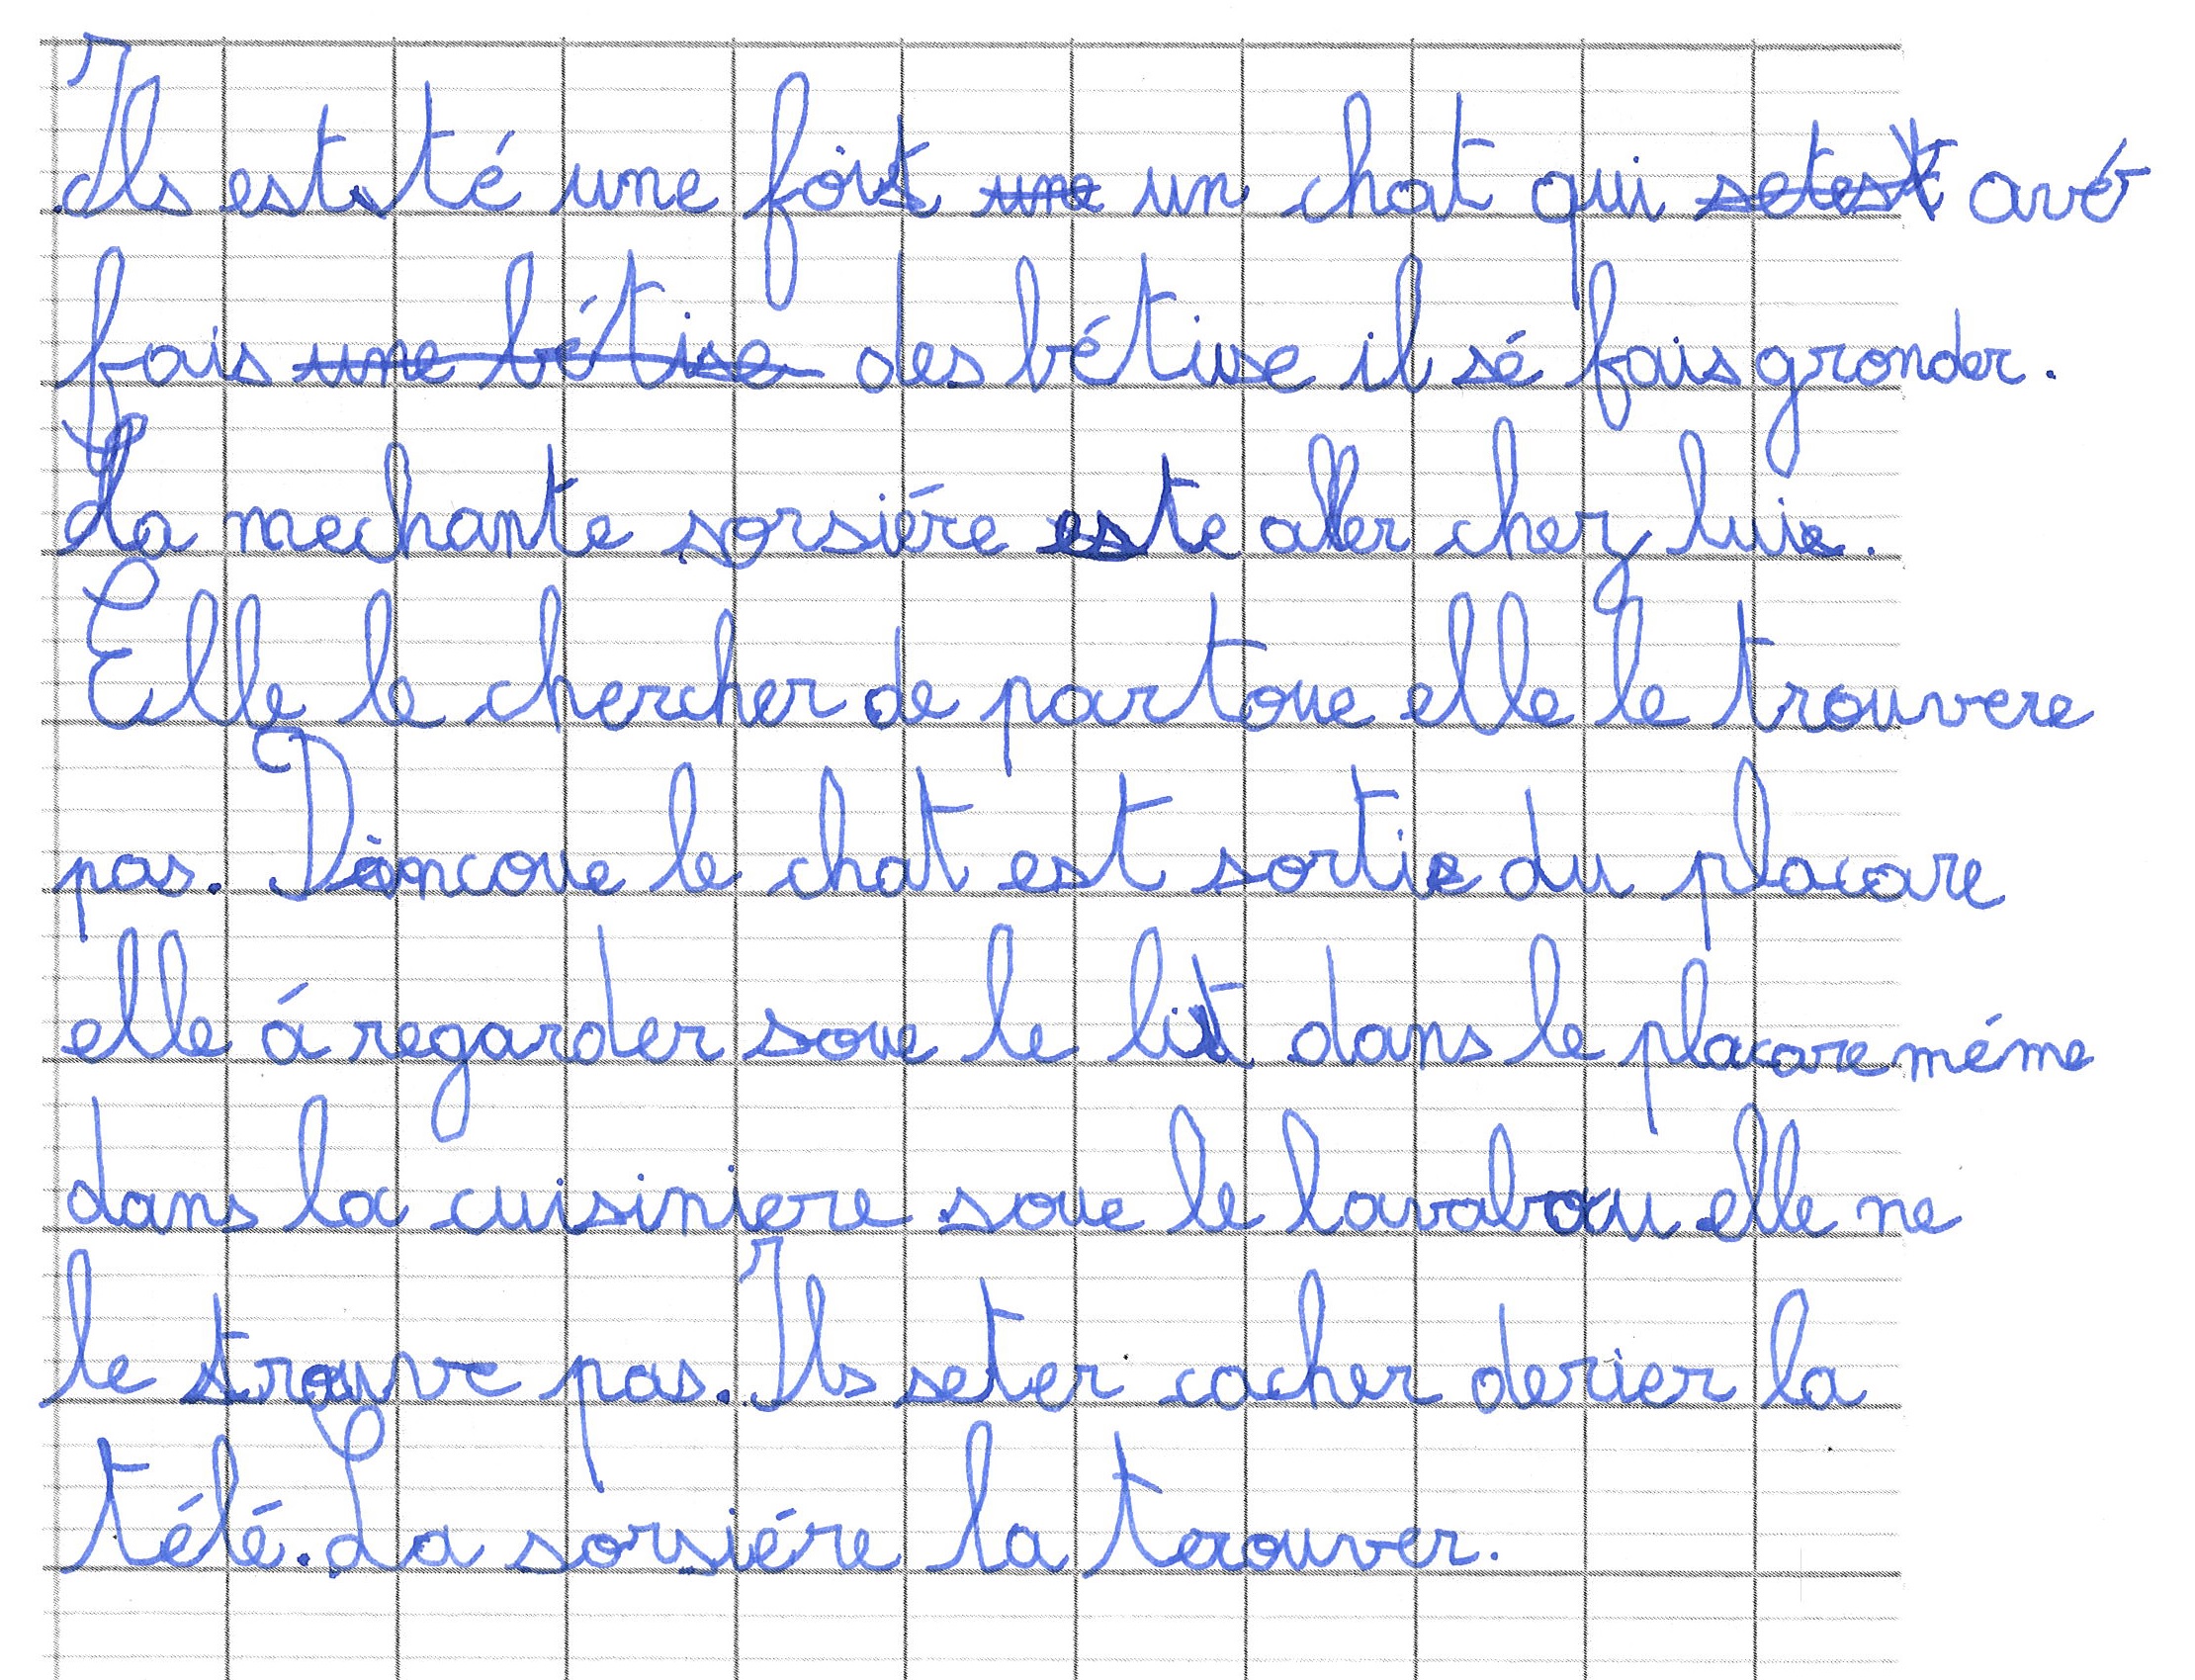 Ils est té une fois un chat qui avé
fais des bétise il sé fais gronder.
La mechante sorsiére este aller chez luie.
Elle le chercher de partoue elle le trouvere
pas. Doncoue le chat est sortie du placare
elle á regarder soue le lit dans le placare méme
dans la cuisiniere soue le lavabou elle ne
le trouve pas. Ils seter cacher derier la
télé. La sorsiére la trouver.